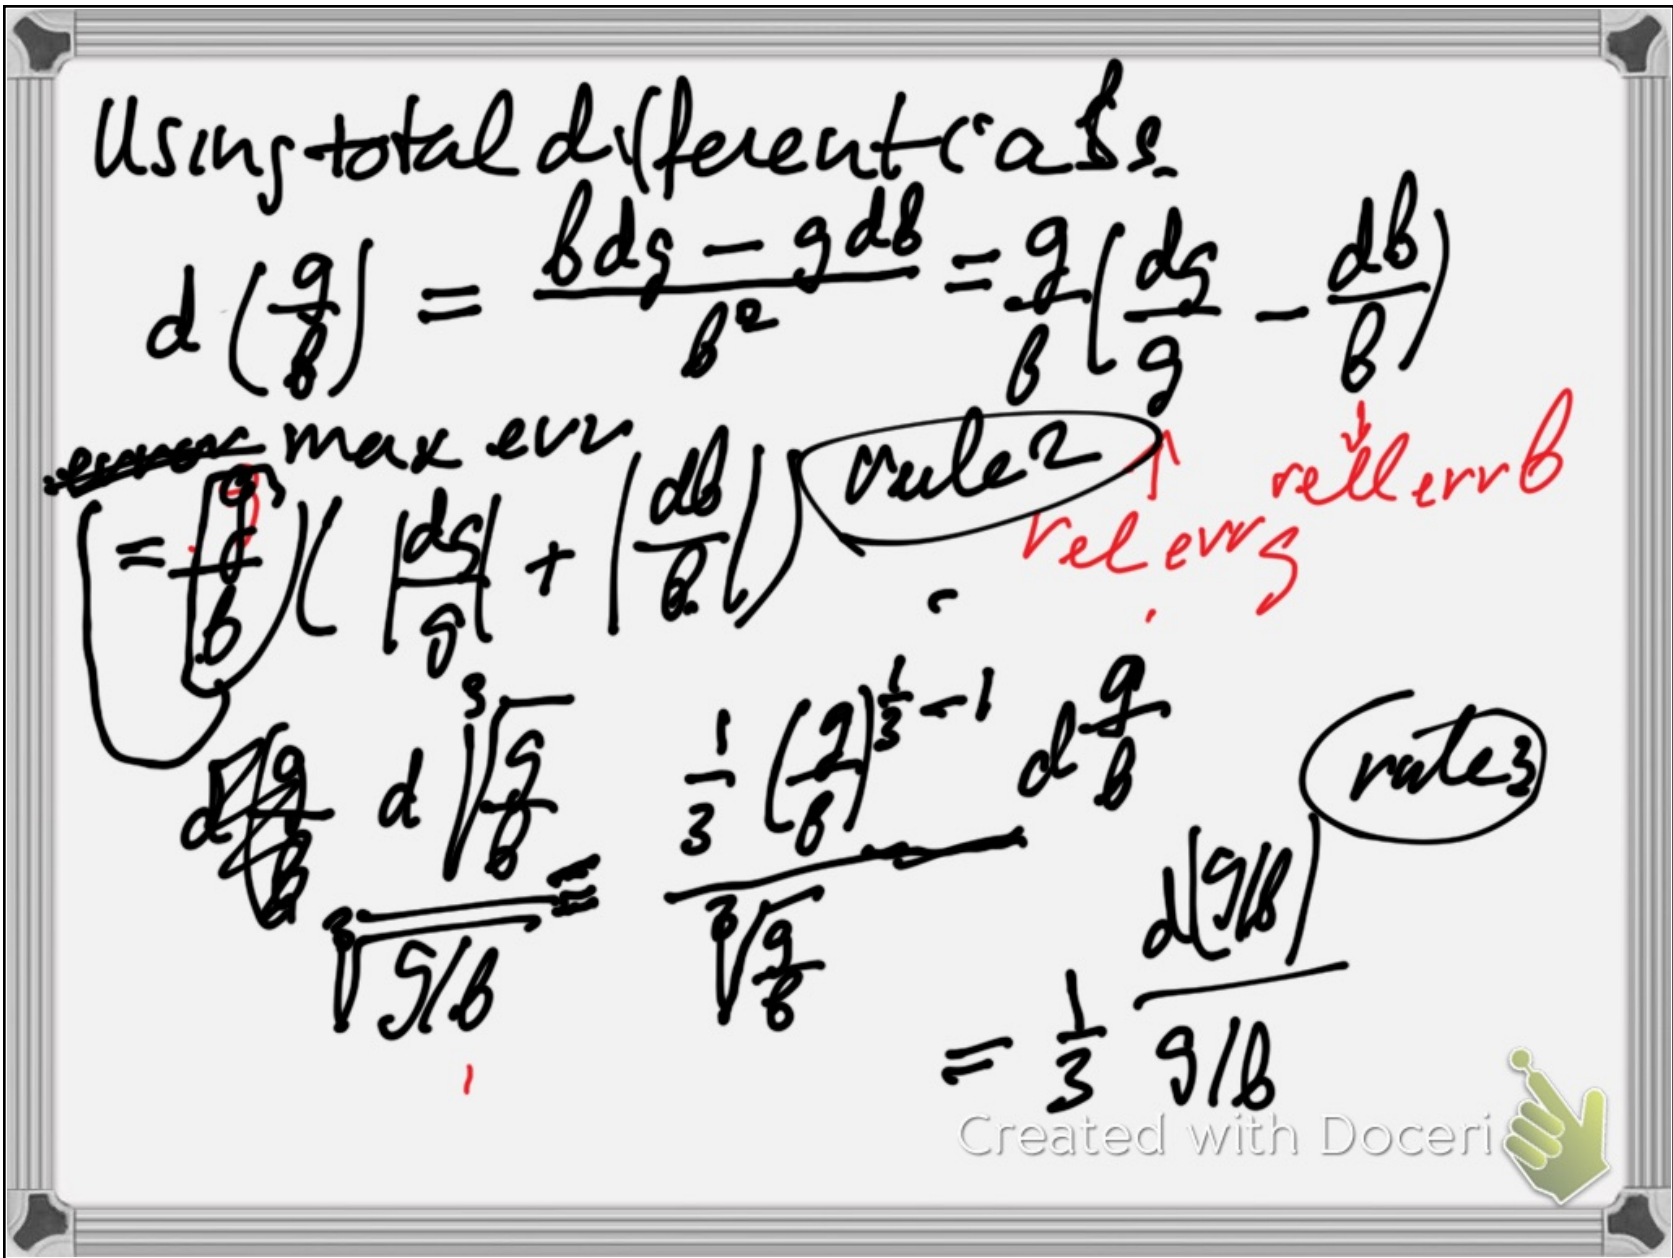 Using total differentials.
d (g/b) = (b dg - g db)/b² = g/b (dg/g - db/b)
max err rule 2 rel err g rel err b
= g/b ( |dg/g| + |db/b| )
d ∛(g/b) / ∛(g/b) = 1/3 (g/b)^(1/3 - 1) d g/b / ∛(g/b)
rule 3
= 1/3 d(g/b) / g/b
Created with Doceri